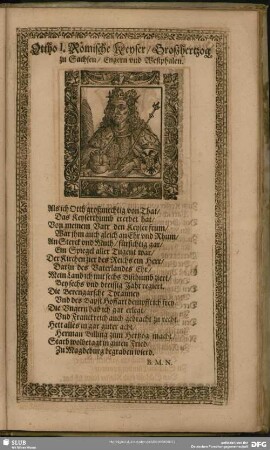 Ottho I. Römische Keyser/ Großhertzog
zu Sachsen/ Engern vnd Westphalen.
Als ich Otth großmechtig von That/
Das Keyserthumb ererbet hat/
Von meinem Vatr den Keyser frum/
War ihm auch gleich an Ehr vnd Rhum/
An Sterck vnd Muth/ fürsichtig gar/
Ein Spiegel aller Tugent war.
Der Kirchen zier des Reichs ein Herr/
Vattr des Vaterlandes Ehr/
Mein Land ich mit sechs Bisthumb ziert/
Bey sechs vnd dreissig Jahr regiert.
Die Berengarsche Tyrannen
Vnd des Bapst Hoffart
Die Vngern hab ich gar erlegt/
Vnd Franckreich auch gebracht zu recht.
Hett alles in gar guter acht.
Herman Billing zum Hertzog macht.
Starb wolbetagt in gutem Fried
Zu Magdeburg begraben
B. M. N.
SLUB